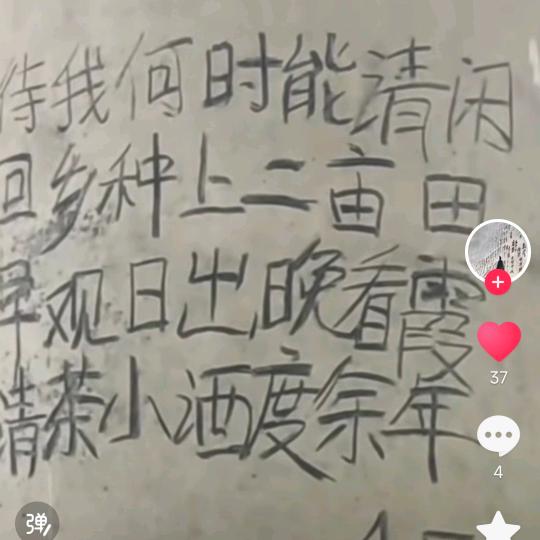 待我何时能清闲
回乡种上二亩田
早观日出晚看霞
清茶小酒度余年
37
4
弹